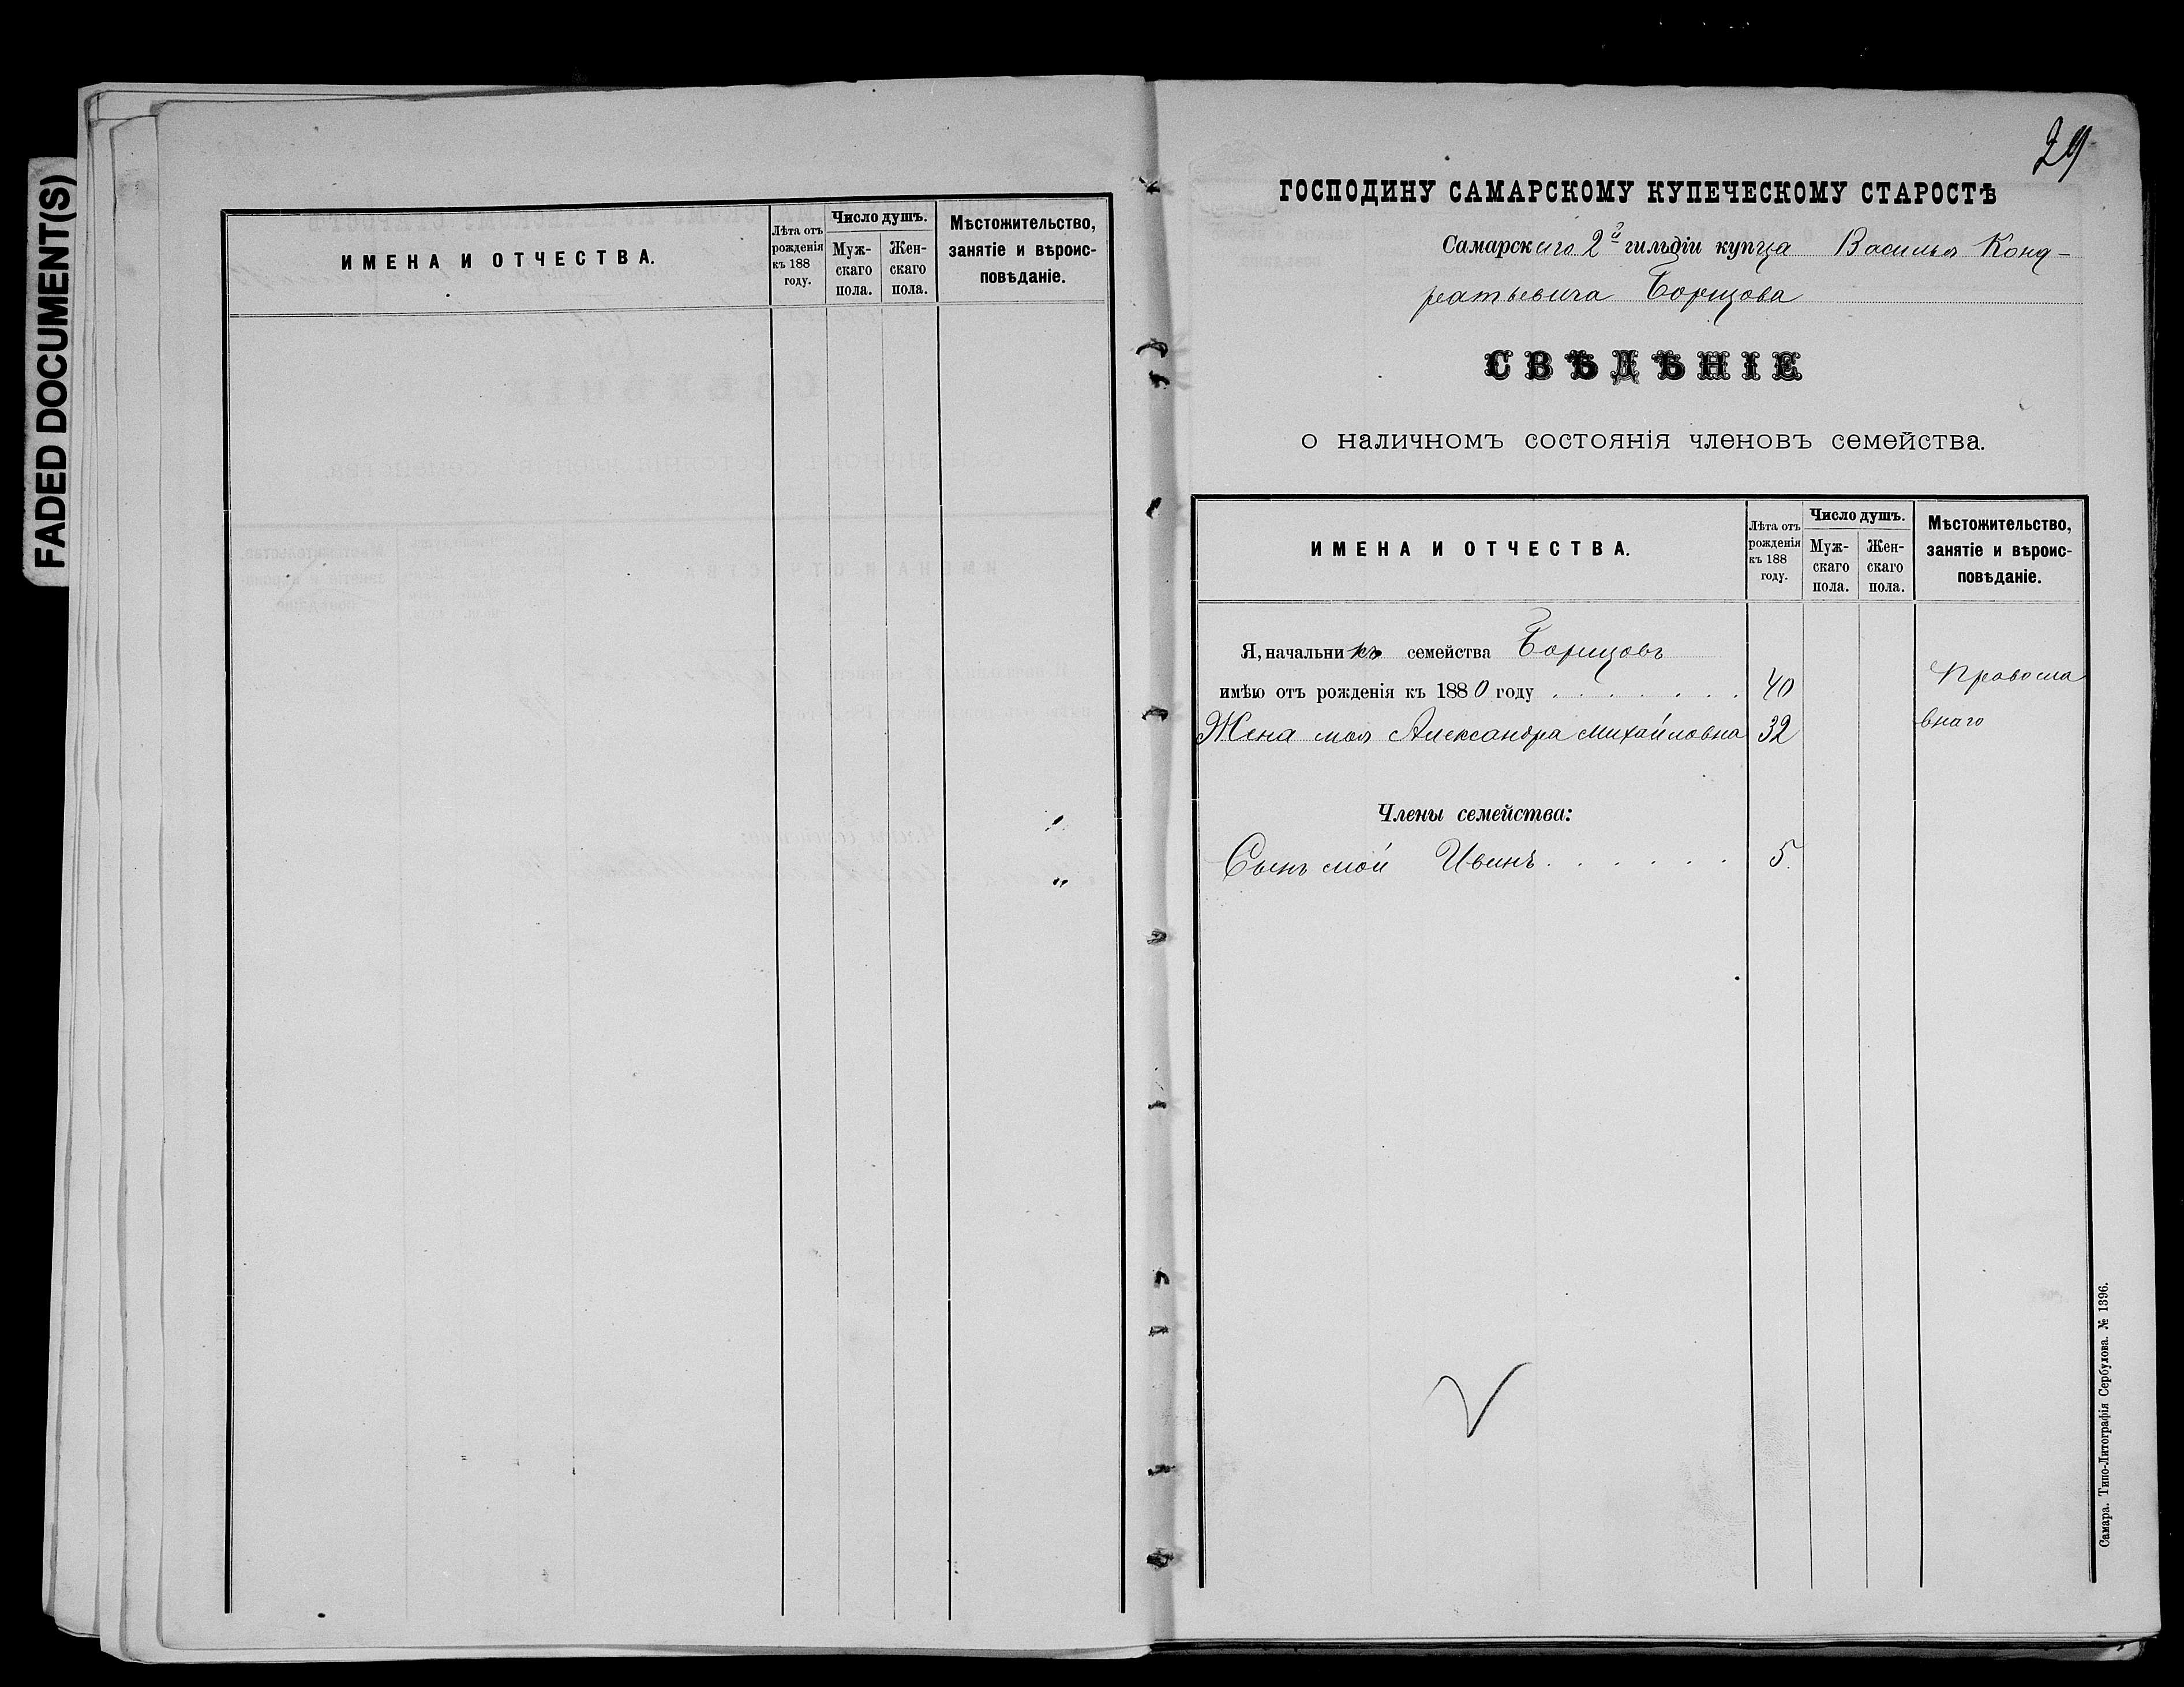 FADED DOCUMENT(S)
ИМЕНА И ОТЧЕСТВА.
Лѣта отъ
рожденія
къ 188
году.
Число душъ.
Муж-
скаго
пола.
Жен-
скаго
пола.
Мѣстожительство,
занятіе и вѣроис-
повѣданіе.
29
ГОСПОДИНУ САМАРСКОМУ КУПЕЧЕСКОМУ СТАРОСТѢ
Самарскаго 2й гильдіи купца Василья Конд-
ратьевича Борщова
СВѢДѢНІЕ
о наличномъ состоянія членовъ семейства.
ИМЕНА И ОТЧЕСТВА.
Лѣта отъ
рожденія
къ 188
году.
Число душъ.
Муж-
скаго
пола.
Жен-
скаго
пола.
Мѣстожительство,
занятіе и вѣроис-
повѣданіе.
Я, начальникъ семейства Борщовъ
имѣю отъ рожденія къ 1880 году . . . . . . 40 Правосла
Жена моя Александра Михайловна 32 внаго
Члены семейства:
Сынъ мой Иванъ . . . . . . 5.
Самара. Типо-Литографія Сербулова. № 1396.